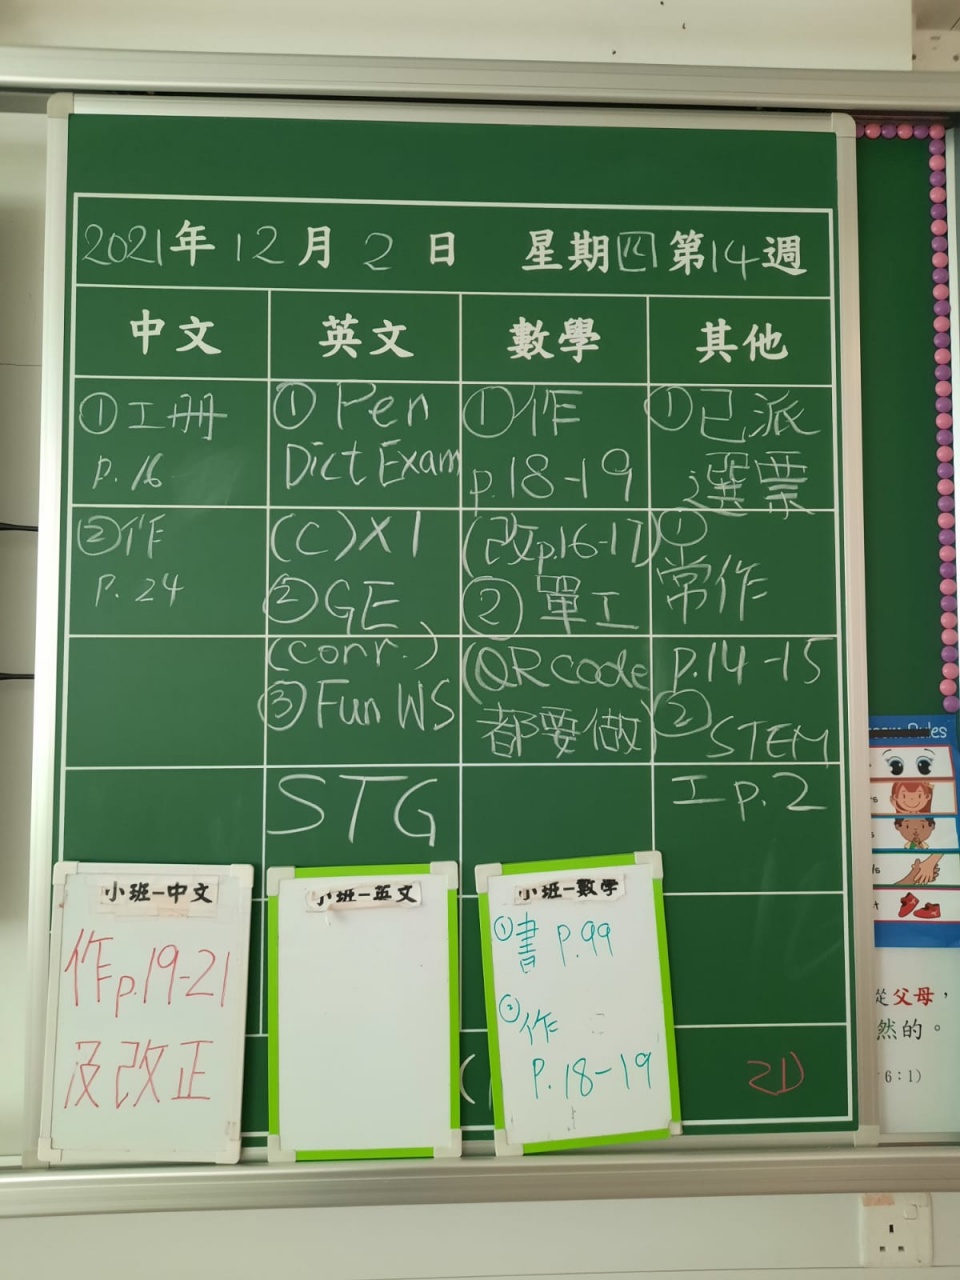 2021年12月2日 星期四 第14週
中文 英文 數學 其他
①工冊
p.16
②作
p.24
①Pen
Dict Exam
(C)X1
②GE
(corr.)
③Fun WS
STG
①作
p.18-19
(改p.16-17)
②單工
(QR code
都要做)
①已派
選票
①
常作
p.14-15
②
STEM
工p.2
小班-中文
作p.19-21
及改正
小班-英文
小班-數學
①書 P.99
②作
P.18-19
2D
Rules
從父母，
然的。
6：1）